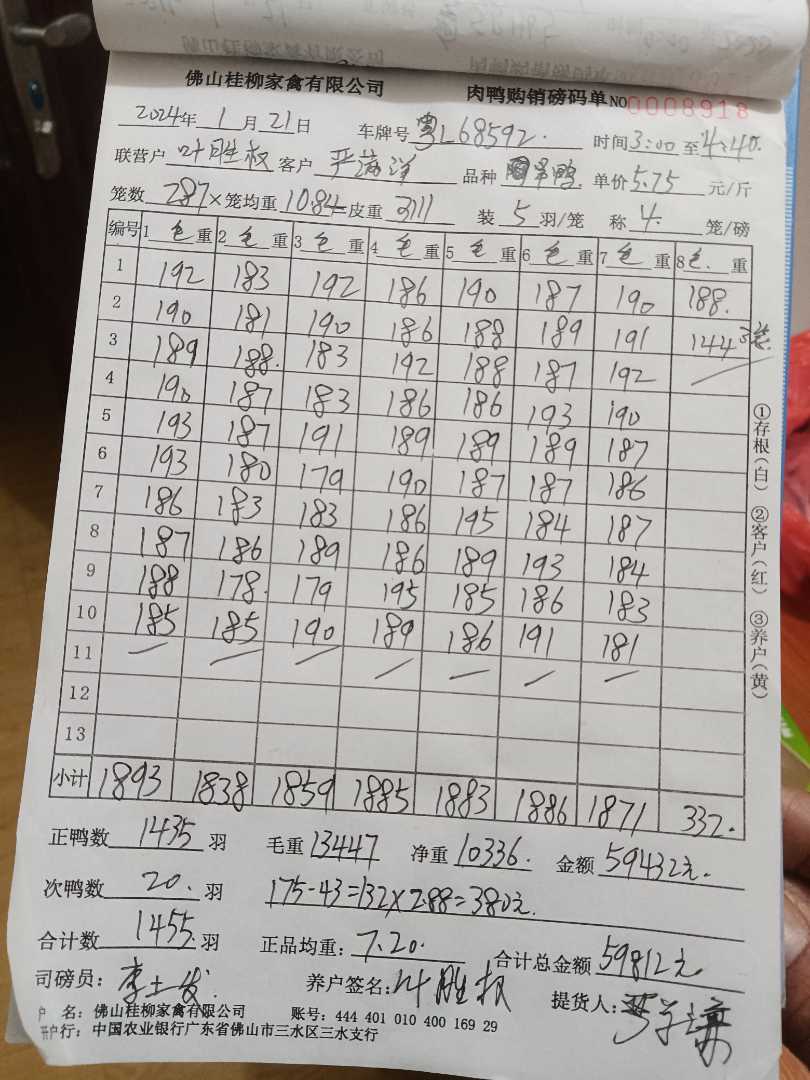 佛山桂柳家禽有限公司 肉鸭购销磅码单 NO 0008918
2024年 1月 21日 车牌号 粤L68592. 时间 3:00 至 4:40.
联营户 叶胜权 客户 严海洋 品种 鸭 单价 5.75 元/斤
笼数 287 × 笼均重 10.84 = 皮重 3111 装 5 羽/笼 称 4. 笼/磅
编号 1 毛 重 2 毛 重 3 毛 重 4 毛 重 5 毛 重 6 毛 重 7 毛 重 8 毛. 重
1 192 183 192 186 190 187 190 188.
2 190 181 190 186 188 189 191 144 3笼.
3 189 188. 183 192 188 187 192
4 190 187 183 186 186 193 190
5 193 187 191 189 189 189 187
6 193 180 179 190 187 187 186
7 186 183 183 186 195 184 187
8 187 186 189 186 189 193 184
9 188 178. 179 195 185 186 183
10 185 185 190 189 186 191 181
11
12
13
小计 1893 1838 1859 1885 1883 1886 1871 332.
正鸭数 1435 羽 毛重 13447 净重 10336. 金额 59432元.
次鸭数 20. 羽 175-43=132×2.88=380元.
合计数 1455. 羽 正品均重: 7.20. 合计总金额 59812元
司磅员: 李土发. 养户签名: 叶胜权 提货人:
户 名: 佛山桂柳家禽有限公司 账号: 444 401 010 400 169 29
开户行: 中国农业银行广东省佛山市三水区三水支行
①存根(白) ②客户(红) ③养户(黄)